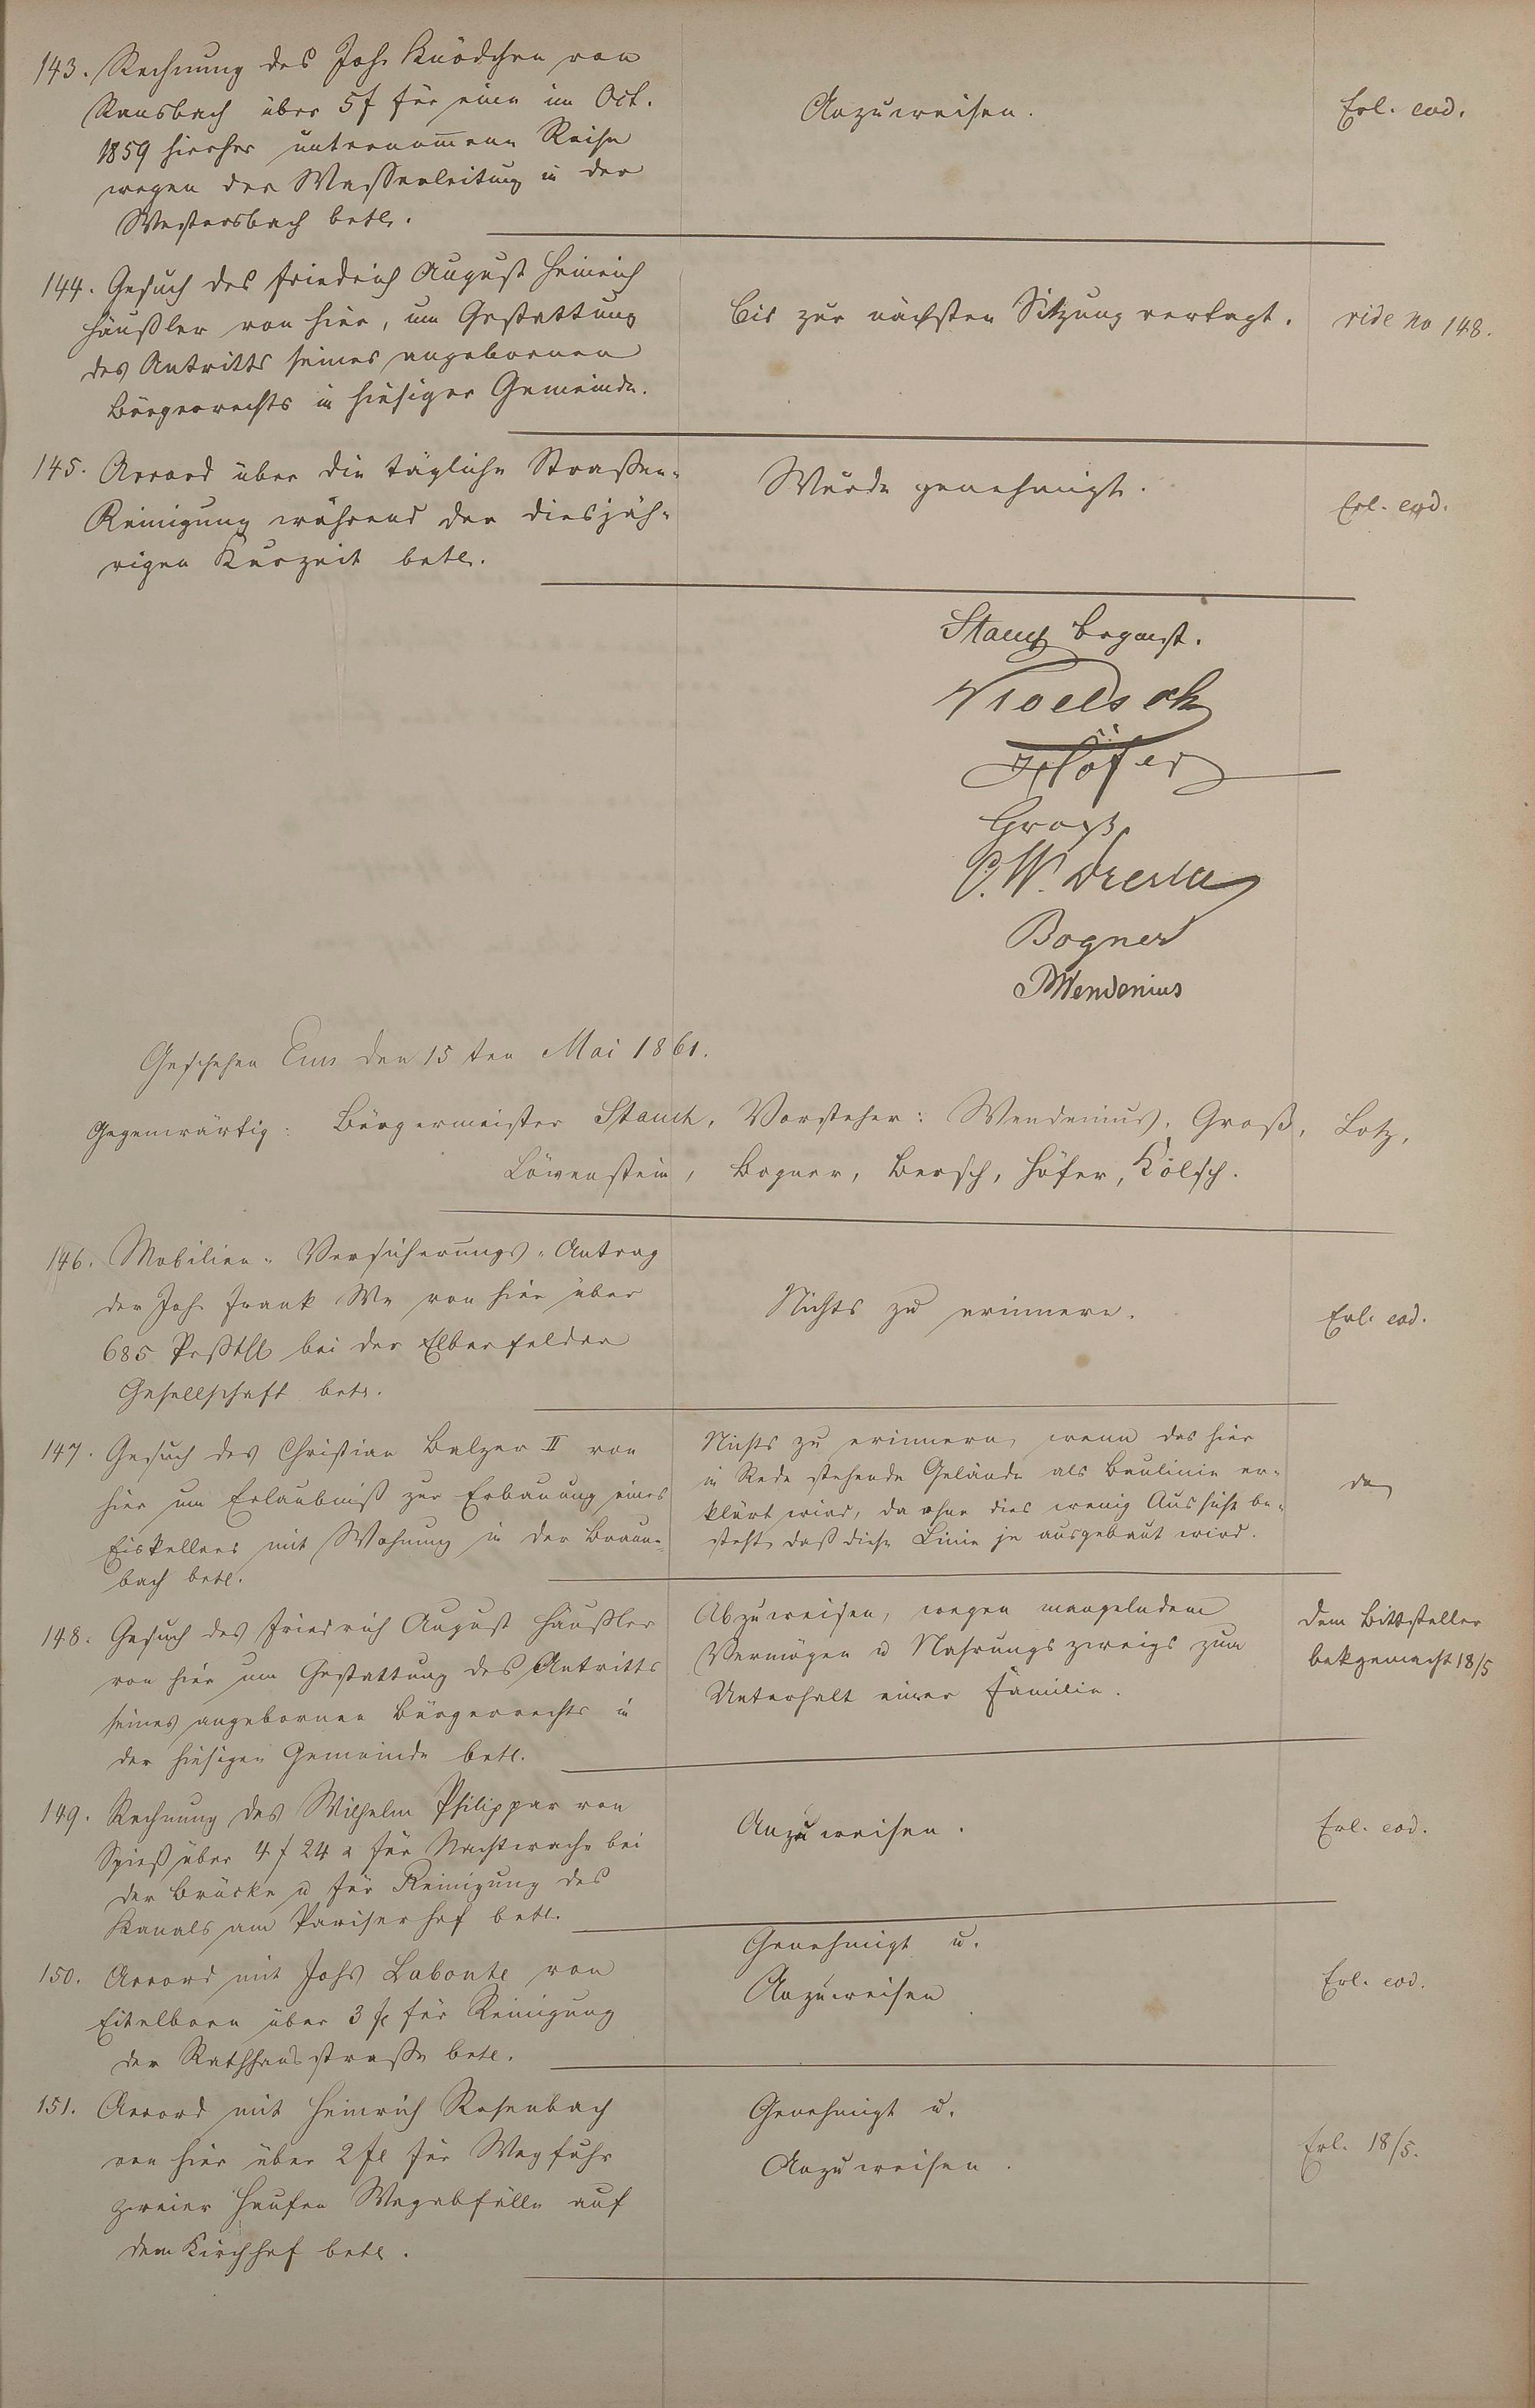 143. Rechnung des Joh. Knödchen von
Ransbach über 5 f für eine im Oct.
1859 hierher unternom̅ene Reise
wegen der Wasserleitung in der
Westersbach betr.
Anzuweisen.
Erl. eod.
144. Gesuch des Friedrich August Heinrich
Häußler von hier, um Gestattung
des Antritts seines angebornen
Bürgerrechts in hiesiger Gemeinde.
Bis zur nächsten Sitzung vertagt.
vide no 148.
145. Accord über die tägliche Straßen-
Reinigung während der diesjäh-
rigen Kurzeit betr.
Wurde genehmigt.
Erl. eod.
Stauch Brgmst.
Höfer
Groß
Bogner
Wendenius
Geschehen Ems den 15ten Mai 1861.
Gegenwärtig: Bürgermeister Stauch, Vorsteher: Wendenius, Groß, Lotz,
Löwenstein, Bogner, Bersch, Höfer, Kölsch.
146. Mobilien-Versicherungs-Antrag
der Joh. Frank We von hier über
685 bei der Elberfelder
Gesellschaft betr.
Nichts zu erinnern.
Erl. eod.
147. Gesuch des Christian Balzer II von
hier um Erlaubniß zur Erbauung eines
Eiskellers mit Wohnung in der Braun-
bach betr.
Nichts zu erinnern, wenn das hier
in Rede stehende Gelände als Baulinie er-
klärt wird, da ohne dies wenig Aussicht be-
steht, daß diese Linie je ausgebaut wird.
do
148. Gesuch des Friedrich August Häußler
von hier um Gestattung des Antritts
seines angebornen Bürgerrechts in
der hiesigen Gemeinde betr.
Abzuweisen, wegen mangelndem
Vermögen u Nahrungszweigs zum
Unterhalt einer Familie.
Dem Bittsteller
bekgemacht 18/5
149. Rechnung des Wilhelm Philippar von
Spieß über 4 f 24 x für Nachtwache bei
der Brücke u für Reinigung des
Kanals am Pariser hof betr.
Anzuweisen.
Erl. eod.
150. Accord mit Johs Labonte von
Eitelborn über 3 fl für Reinigung
der Rathhausstraße betr.
Genehmigt u.
Anzuweisen
Erl. eod.
151. Accord mit Heinrich Rosenbach
von hier über 2 fl für Wegfuhr
zweier Haufen Wegabfälle auf
dem Kirchhof betr.
Genehmigt u.
Anzuweisen.
Erl. 18/5.